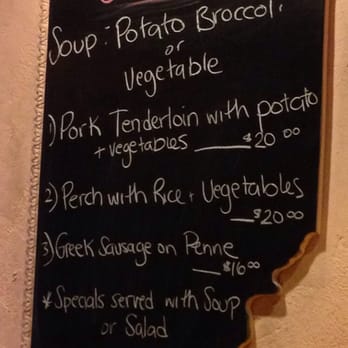 Soup: Potato Broccoli
or
Vegetable
1) Pork Tenderloin with potato
+ vegetables $20.00
2) Perch with Rice + Vegetables
$20.00
3) Greek Sausage on Penne
$16.00
* Specials served with Soup
or Salad